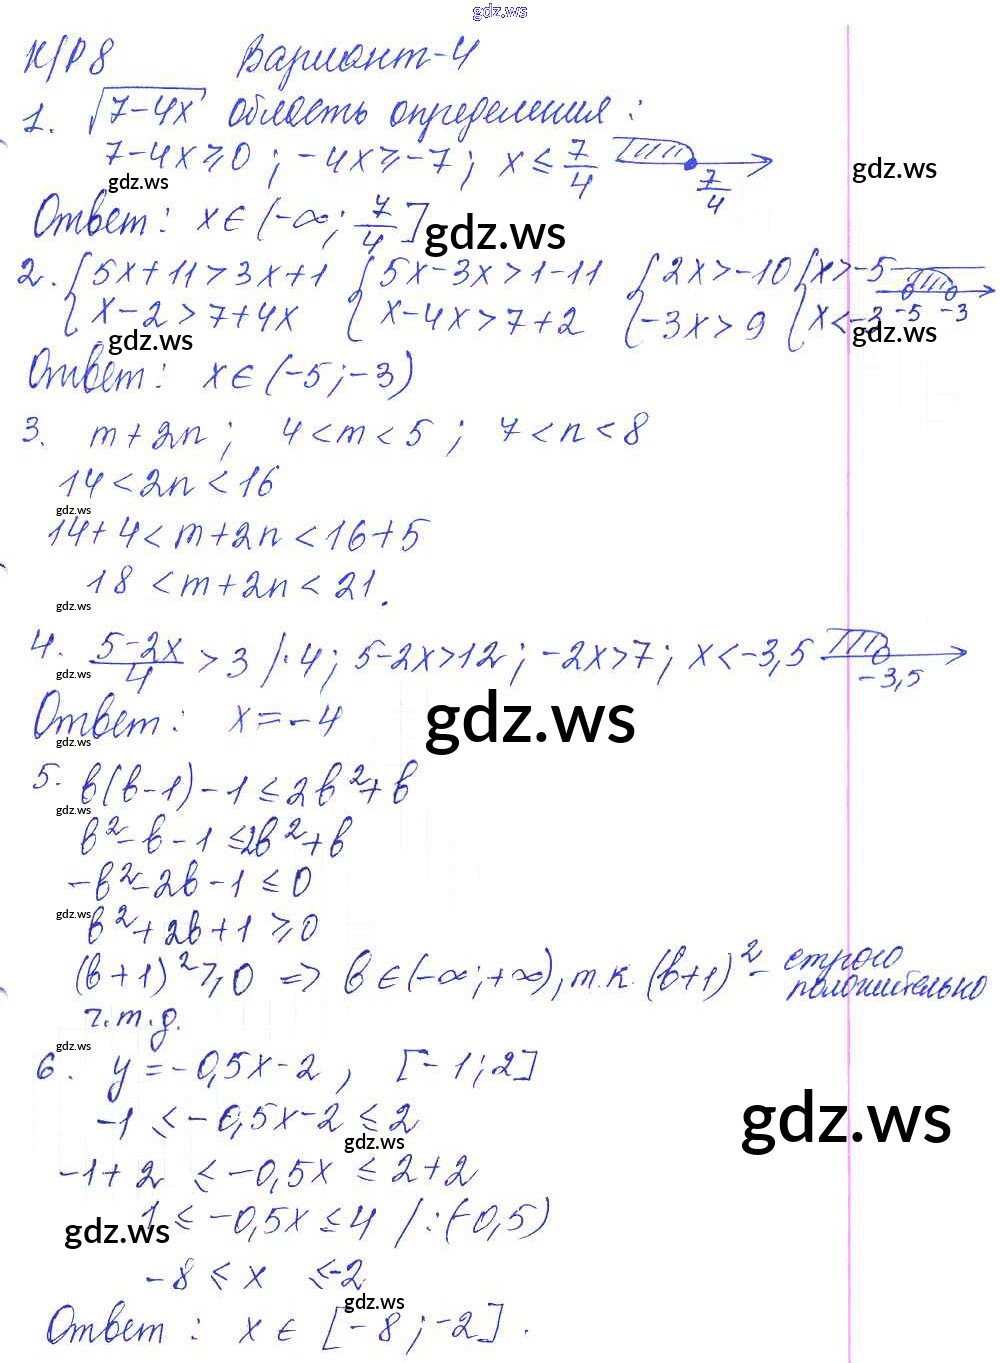 gdz.ws
К/Р 8 Вариант-4
1. √7-4x область определения:
7-4x⩾0; -4x⩾-7; x≤7/4 7/4 gdz.ws
gdz.ws
Ответ: x∈(-∞; 7/4] gdz.ws
2. {5x+11>3x+1 {5x-3x>1-11 {2x>-10 {x>-5
x-2>7+4x x-4x>7+2 -3x>9 x<-3 -5 -3
gdz.ws gdz.ws
Ответ: x∈(-5;-3)
3. m+2n; 4<m<5; 7<n<8
14<2n<16
gdz.ws
14+4<m+2n<16+5
18<m+2n<21.
gdz.ws
4. 5-2x/4 >3 /·4; 5-2x>12; -2x>7; x<-3,5 -3,5
gdz.ws
Ответ: x=-4 gdz.ws
gdz.ws
5. в(в-1)-1≤2в²+в
gdz.ws
в²-в-1≤2в²+в
-в²-2в-1≤0
gdz.ws
в²+2в+1⩾0
(в+1)²⩾0 => в∈(-∞;+∞), т.к. (в+1)² - строго положительно
ч.т.д.
gdz.ws
6. y=-0,5x-2, [-1;2]
-1≤-0,5x-2≤2 gdz.ws
gdz.ws
-1+2≤-0,5x≤2+2
1≤-0,5x≤4 /:(-0,5)
gdz.ws
-8≤x≤-2
gdz.ws
Ответ: x∈[-8;-2].